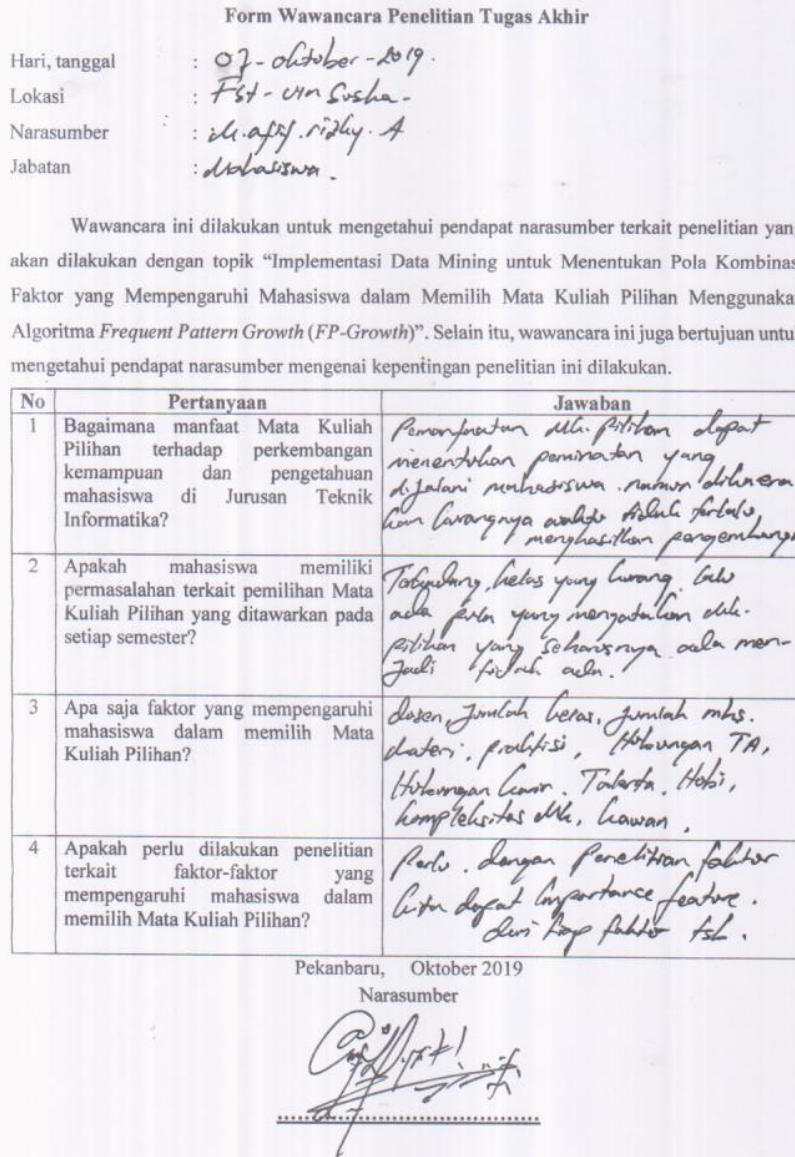 Form Wawancara Penelitian Tugas Akhir
Hari, tanggal : 07-oktober-2019.
Lokasi : Fst-uin Suska-
Narasumber : M.afif.rizky.A
Jabatan : Mahasiswa.
Wawancara ini dilakukan untuk mengetahui pendapat narasumber terkait penelitian yang
akan dilakukan dengan topik “Implementasi Data Mining untuk Menentukan Pola Kombinas
Faktor yang Mempengaruhi Mahasiswa dalam Memilih Mata Kuliah Pilihan Menggunakan
Algoritma Frequent Pattern Growth (FP-Growth)”. Selain itu, wawancara ini juga bertujuan untuk
mengetahui pendapat narasumber mengenai kepentingan penelitian ini dilakukan.
No Pertanyaan Jawaban
1 Bagaimana manfaat Mata Kuliah
Pilihan terhadap perkembangan
kemampuan dan pengetahuan
mahasiswa di Jurusan Teknik
Informatika?
Pemanfaatan Mk. Pilihan dapat
menentukan peminatan yang
dijalani mahasiswa. namun dikarena
kan kurangnya waktu tidak terlalu
menghasilkan pengembangan
2 Apakah mahasiswa memiliki
permasalahan terkait pemilihan Mata
Kuliah Pilihan yang ditawarkan pada
setiap semester?
kelas yang kurang. lalu
ada pula yang mengatakan Mk.
Pilihan yang seharusnya ada men-
jadi tidak ada.
3 Apa saja faktor yang mempengaruhi
mahasiswa dalam memilih Mata
Kuliah Pilihan?
dosen, Jumlah kelas, Jumlah mhs.
Materi, praktisi, Hubungan TA,
Hubungan karir. Talenta, Hobi,
kompleksitas Mk, kawan.
4 Apakah perlu dilakukan penelitian
terkait faktor-faktor yang
mempengaruhi mahasiswa dalam
memilih Mata Kuliah Pilihan?
Perlu. dengan Penelitian faktor
kita dapat importance feature.
dari tiap faktor tsb.
Pekanbaru, Oktober 2019
Narasumber